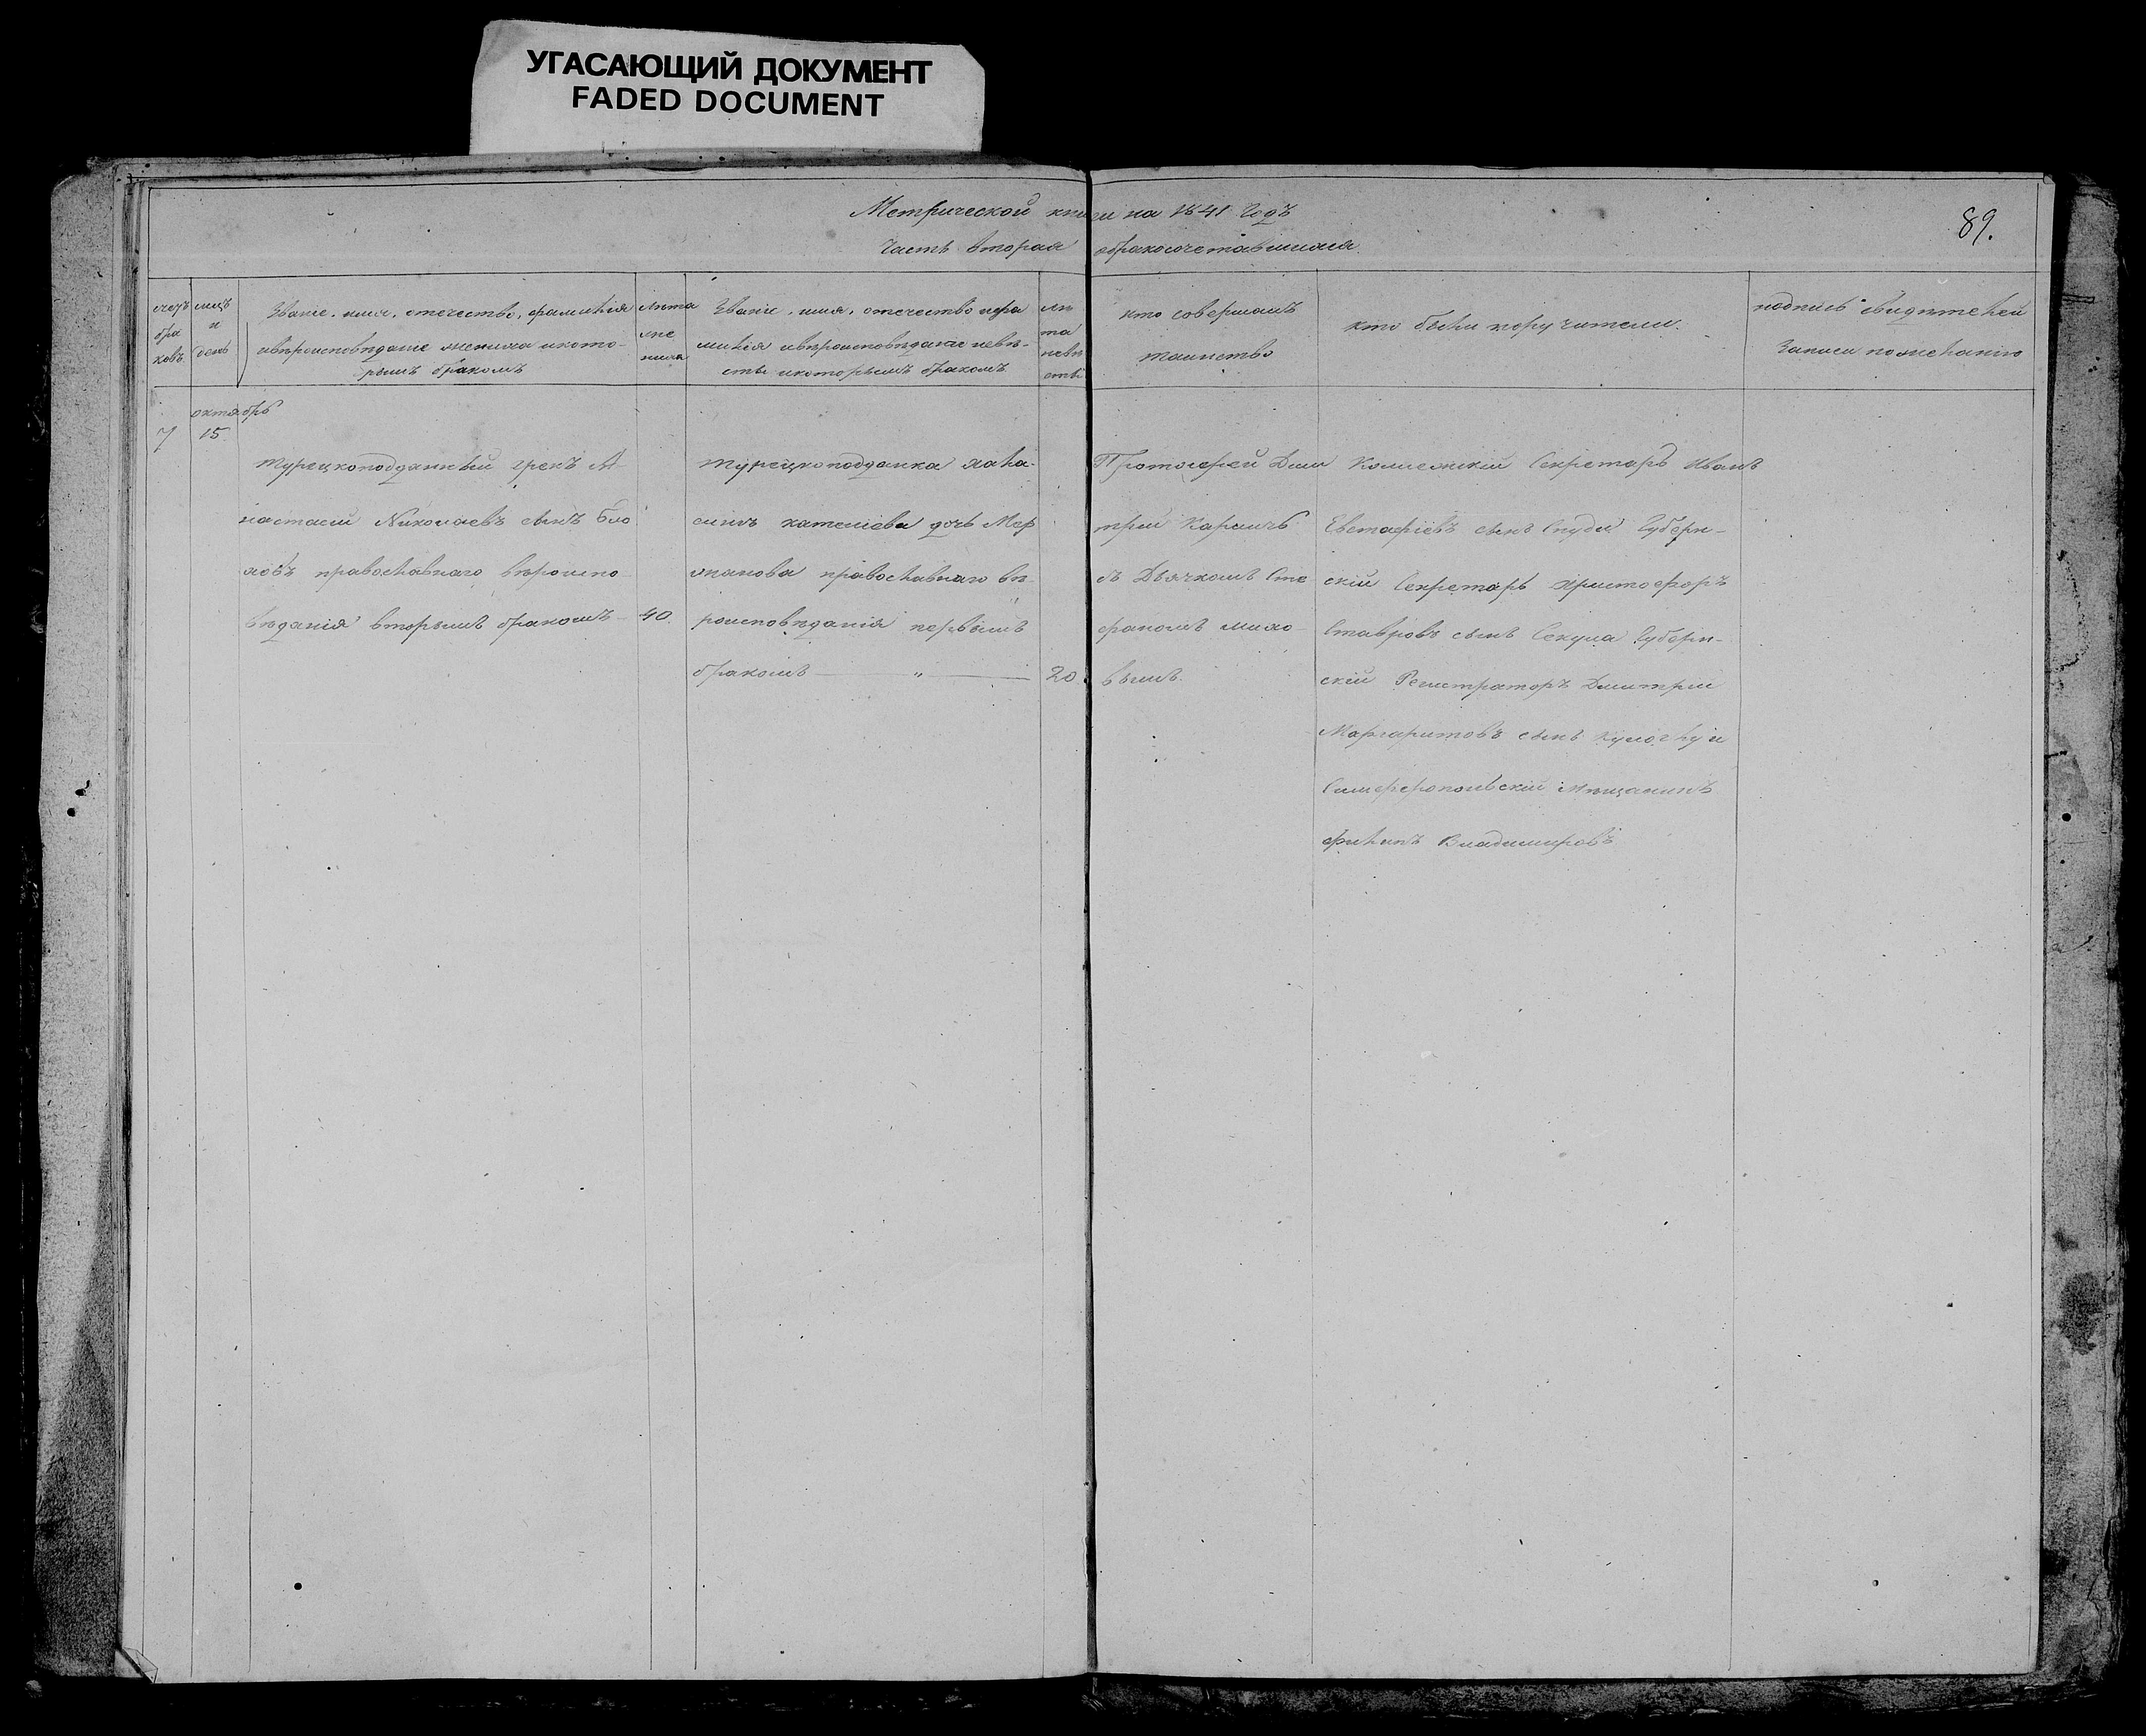 УГАСАЮЩИЙ ДОКУМЕНТ
FADED DOCUMENT
Метрической книги на 1841 годъ
89.
Часть вторая обракосочетавшихся
счетъ
бра
ковъ
мцъ
и
день
Званіе, имя, отечество, фамилія
ивѣроисповѣданіе жениха икото-
рымъ бракомъ
лѣта
же
ниха
Званіе, имя, отечество ифа
милія ивѣроисповѣданіе невѣ-
сты икоторымъ бракомъ
лѣ
та
невѣ
сты
кто совершалъ
таинство
кто были поручители.
подпись свидѣтелей
записи пожеланію
октябрь
7
15
турецкоподданный грекъ А-
настасій Николаевъ сынъ
православнаго вѣроиспо
вѣданія вторымъ бракомъ
40.
турецкоподданка
дочь
православнаго вѣ-
роисповѣданія первымъ
бракомъ — „ —
20.
Протоіерей Дми
трій
съ Дьячкомъ Сте
фаномъ
вымъ.
Коллежскій Секретарь Иванъ
Евстафіевъ сынъ Спуди Губерн-
скій Секретарь Христофоръ
Ставровъ сынъ Секула Губерн-
скій Регистраторъ Дмитрій
Маргаритовъ сынъ
Симферопольскій Мѣщанинъ
Владимировъ